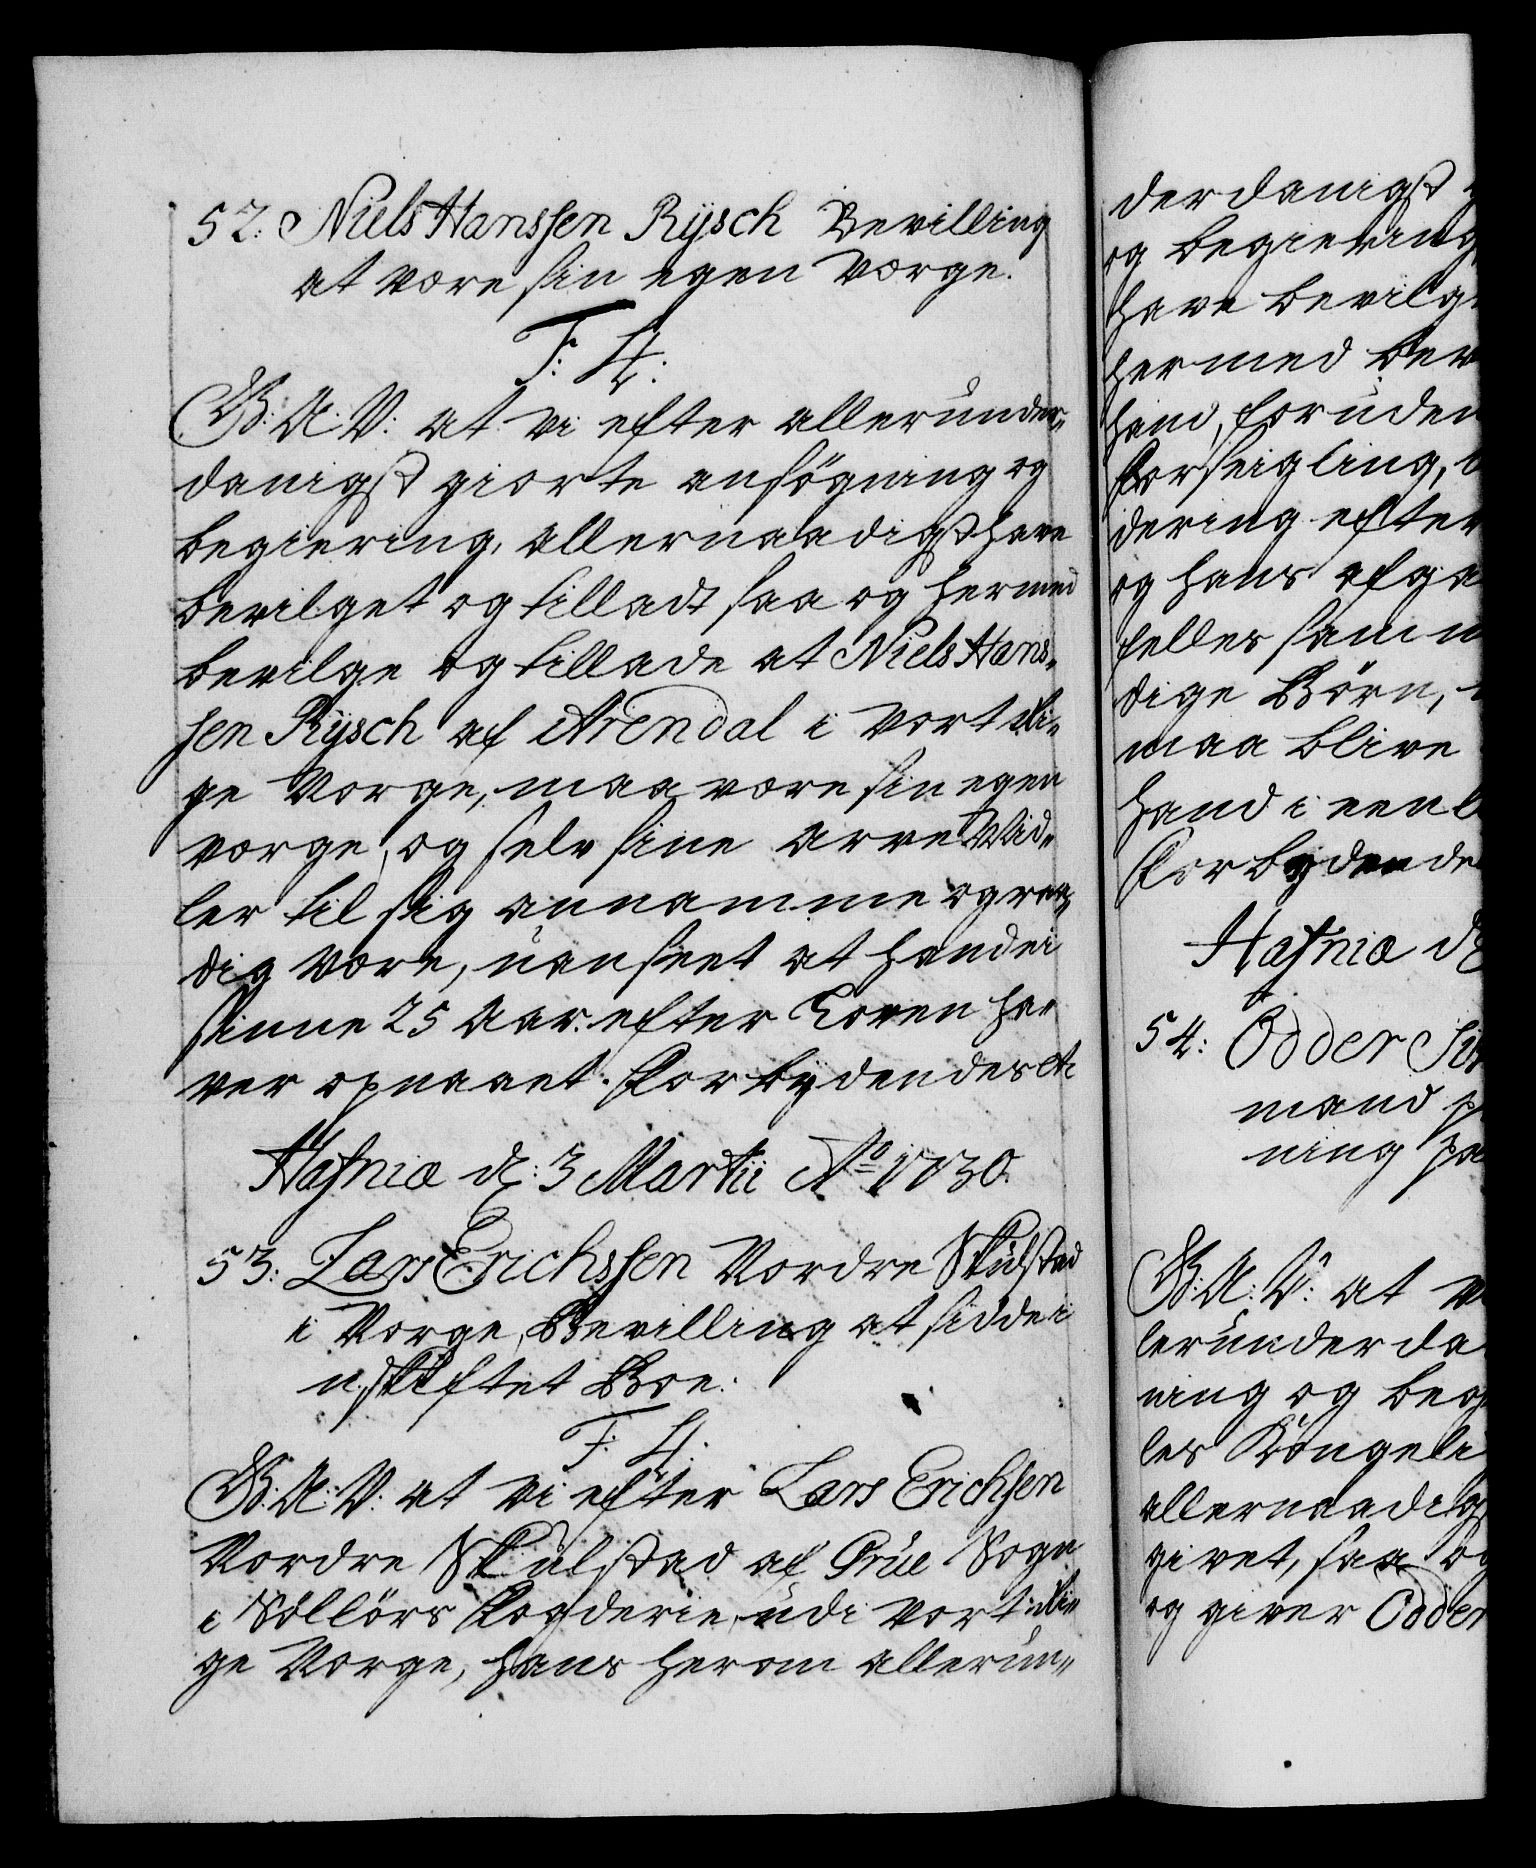 52. Niels Hanssen Rÿsch Bevilling
at være sin egen Værge.
F: 4.
G: A: V: at Vi efter allerunder„
danigst giorte ansögning og
begiering, allernaadigst have
bevilget og tilladt saa og hermed
bevilge og tillade at Niels Hans„
sen Rÿsch af Arendal i Vort Ri„
ge Norge, maa være sin egen
værge, og selv sine Arve Mid„
ler til sig annamme og raa„
dig være, uanseet at hand ei
sinne 25 Aar efter Loven ha„
ver opnaaet. Forbÿdendes etc
Hafniæ d: 3 Martii Ao 1730.
53. Lars Erichssen Nordre Skulstad
i Norge, Bevilling at sidde i
uskiftet Boe.
F: 4.
G: A: V: at Vi efter Lars Erichsen
Nordre Skulstad af Grue Sogn
i Sollörs Fogderie, udi Vort Ri„
ge Norge, hans herom allerun„
derdanigst
og begiering
have bevilg
hermed bev
hand, foruden
Forseigling,
dering efter
og hans afga
felles sam
dige Börn,
maa blive
hand i een
Forbydende
Hafniæ d
54: Odder
mand
ning
G: A: V: at V
lerunderda
ning og beg
les Kongeli
allernaadigst
givet, saa og
og giver Odder